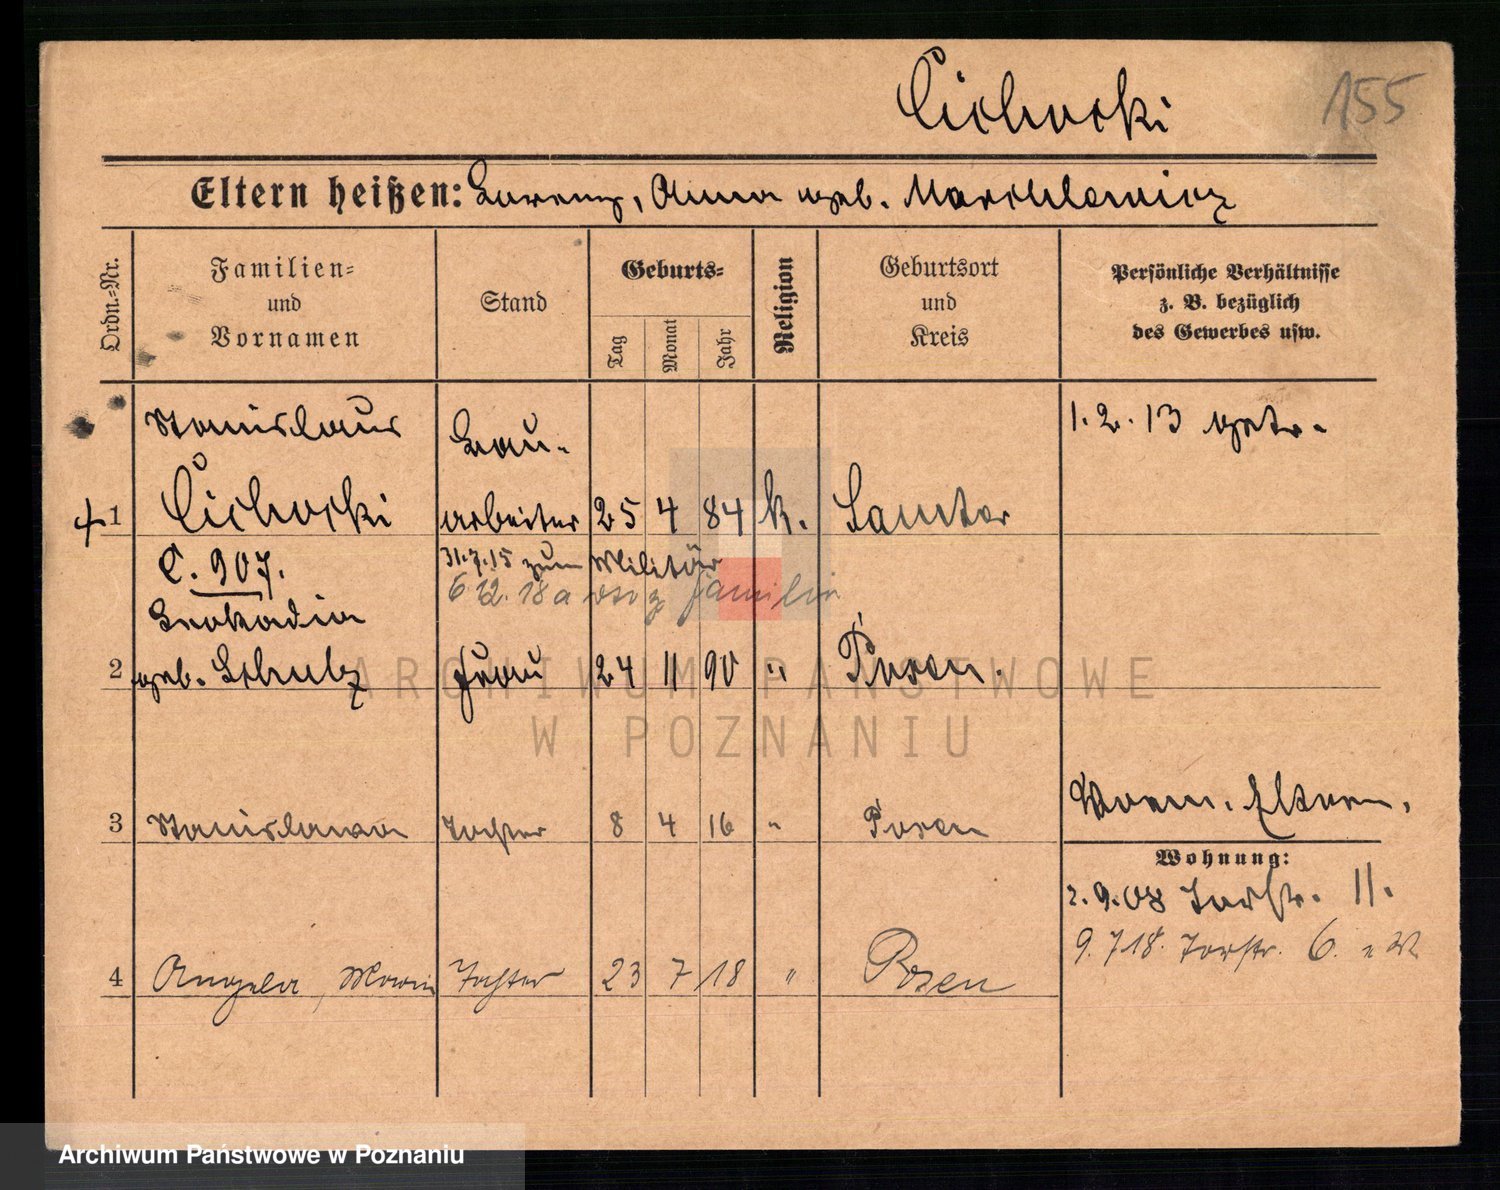 Cichocki
155
Eltern heißen: Lorenz, Anna geb. Marchlewicz
Ordn.=Nr.
Familien=
und
Vornamen
Stand
Geburts=
Tag
Monat
Jahr
Religion
Geburtsort
und
Kreis
Persönliche Verhältnisse
z. B. bezüglich
des Gewerbes usw.
Stanislaus
Bau-
1. 2. 13 getr.
1 Cichocki arbeiter 25 4 84 k. Samter
C. 907.
31.7.15 zum Militär
6 12. 18 a z Familie
Leokadia
2 geb. Schulz Frau 24 11 90 " Posen.
3 Stanislawa Tochter 8 4 16 " Posen
Verm. Eltern.
Wohnung:
2.9.08 Torstr. 11.
9.7 18. Torstr. 6.
4 Angela, Maria Tochter 23 7 18 " Posen
ARCHIWUM PAŃSTWOWE
W POZNANIU
Archiwum Państwowe w Poznaniu